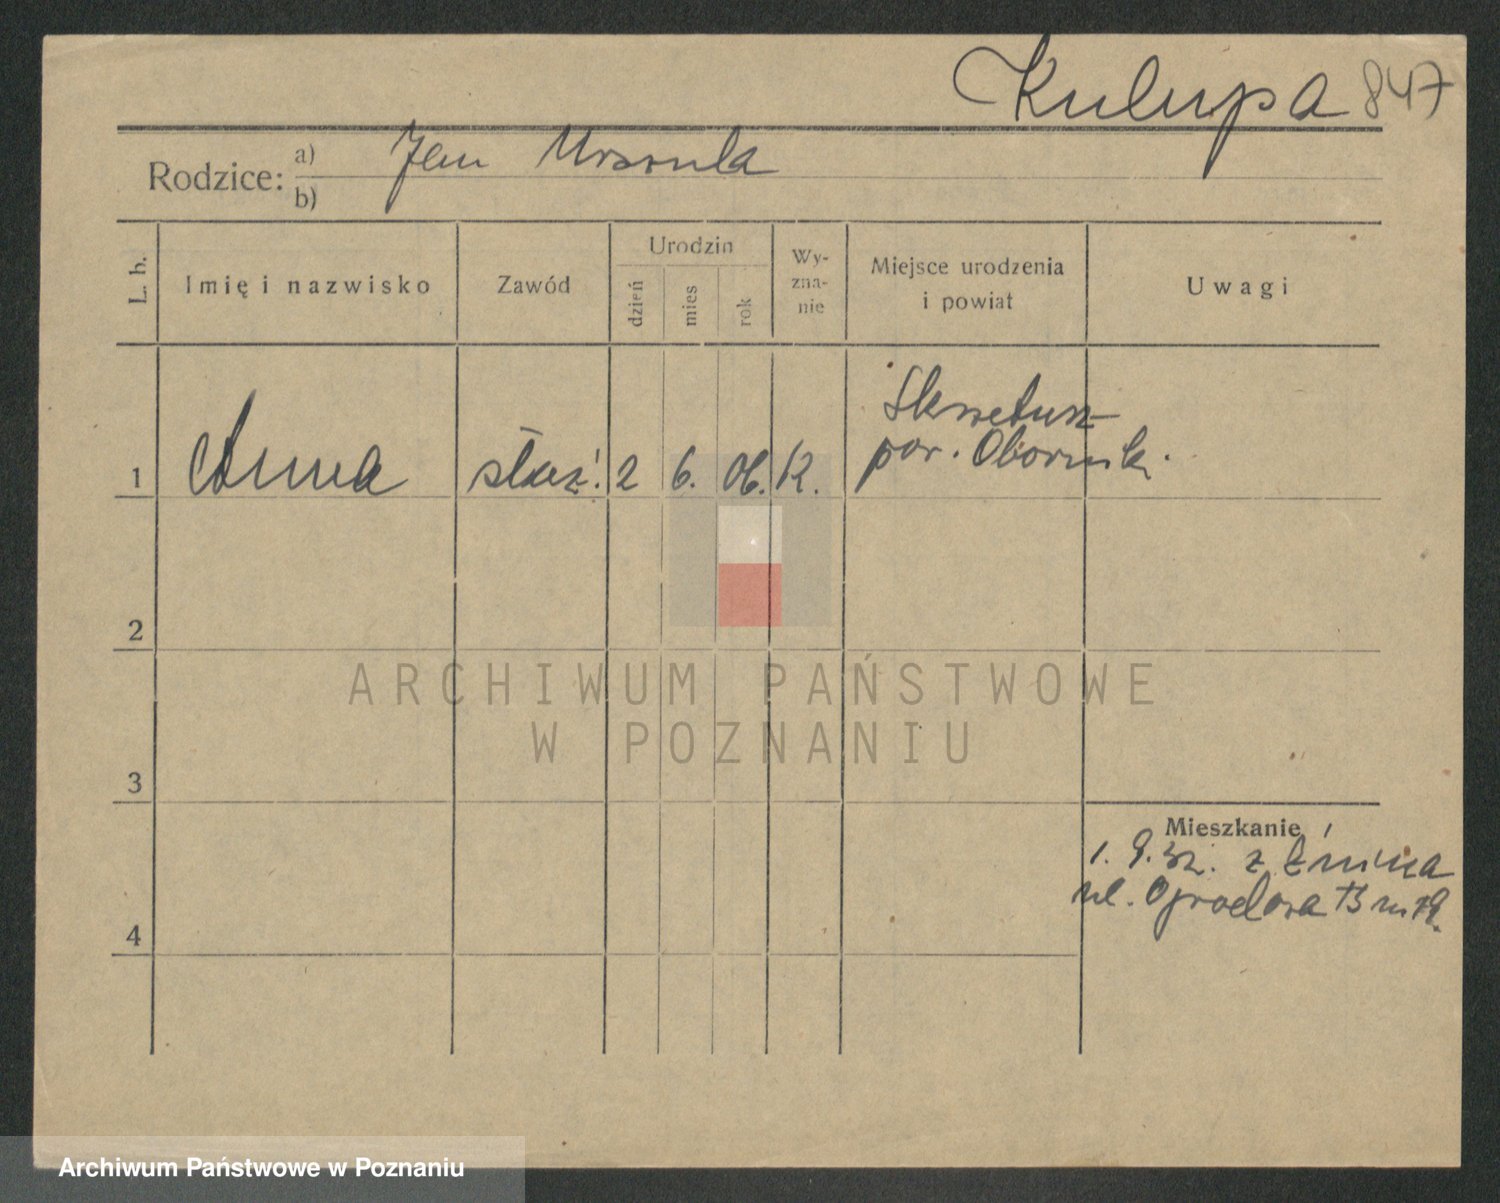 Kulupa 847
Rodzice: a) Jan Urszula
b)
L. b.
Imię i nazwisko
Zawód
Urodzin
dzień
mies
rok
Wy-
zna-
nie
Miejsce urodzenia
i powiat
Uwagi
1 Anna służ. 2 6. 06. K.
Skrzetusz
pow. Obornik.
2
3
4
ARCHIWUM PAŃSTWOWE
W POZNANIU
Mieszkanie
1. 9. 32. z Żnina
ul. Ogrodowa 13 m.
Archiwum Państwowe w Poznaniu